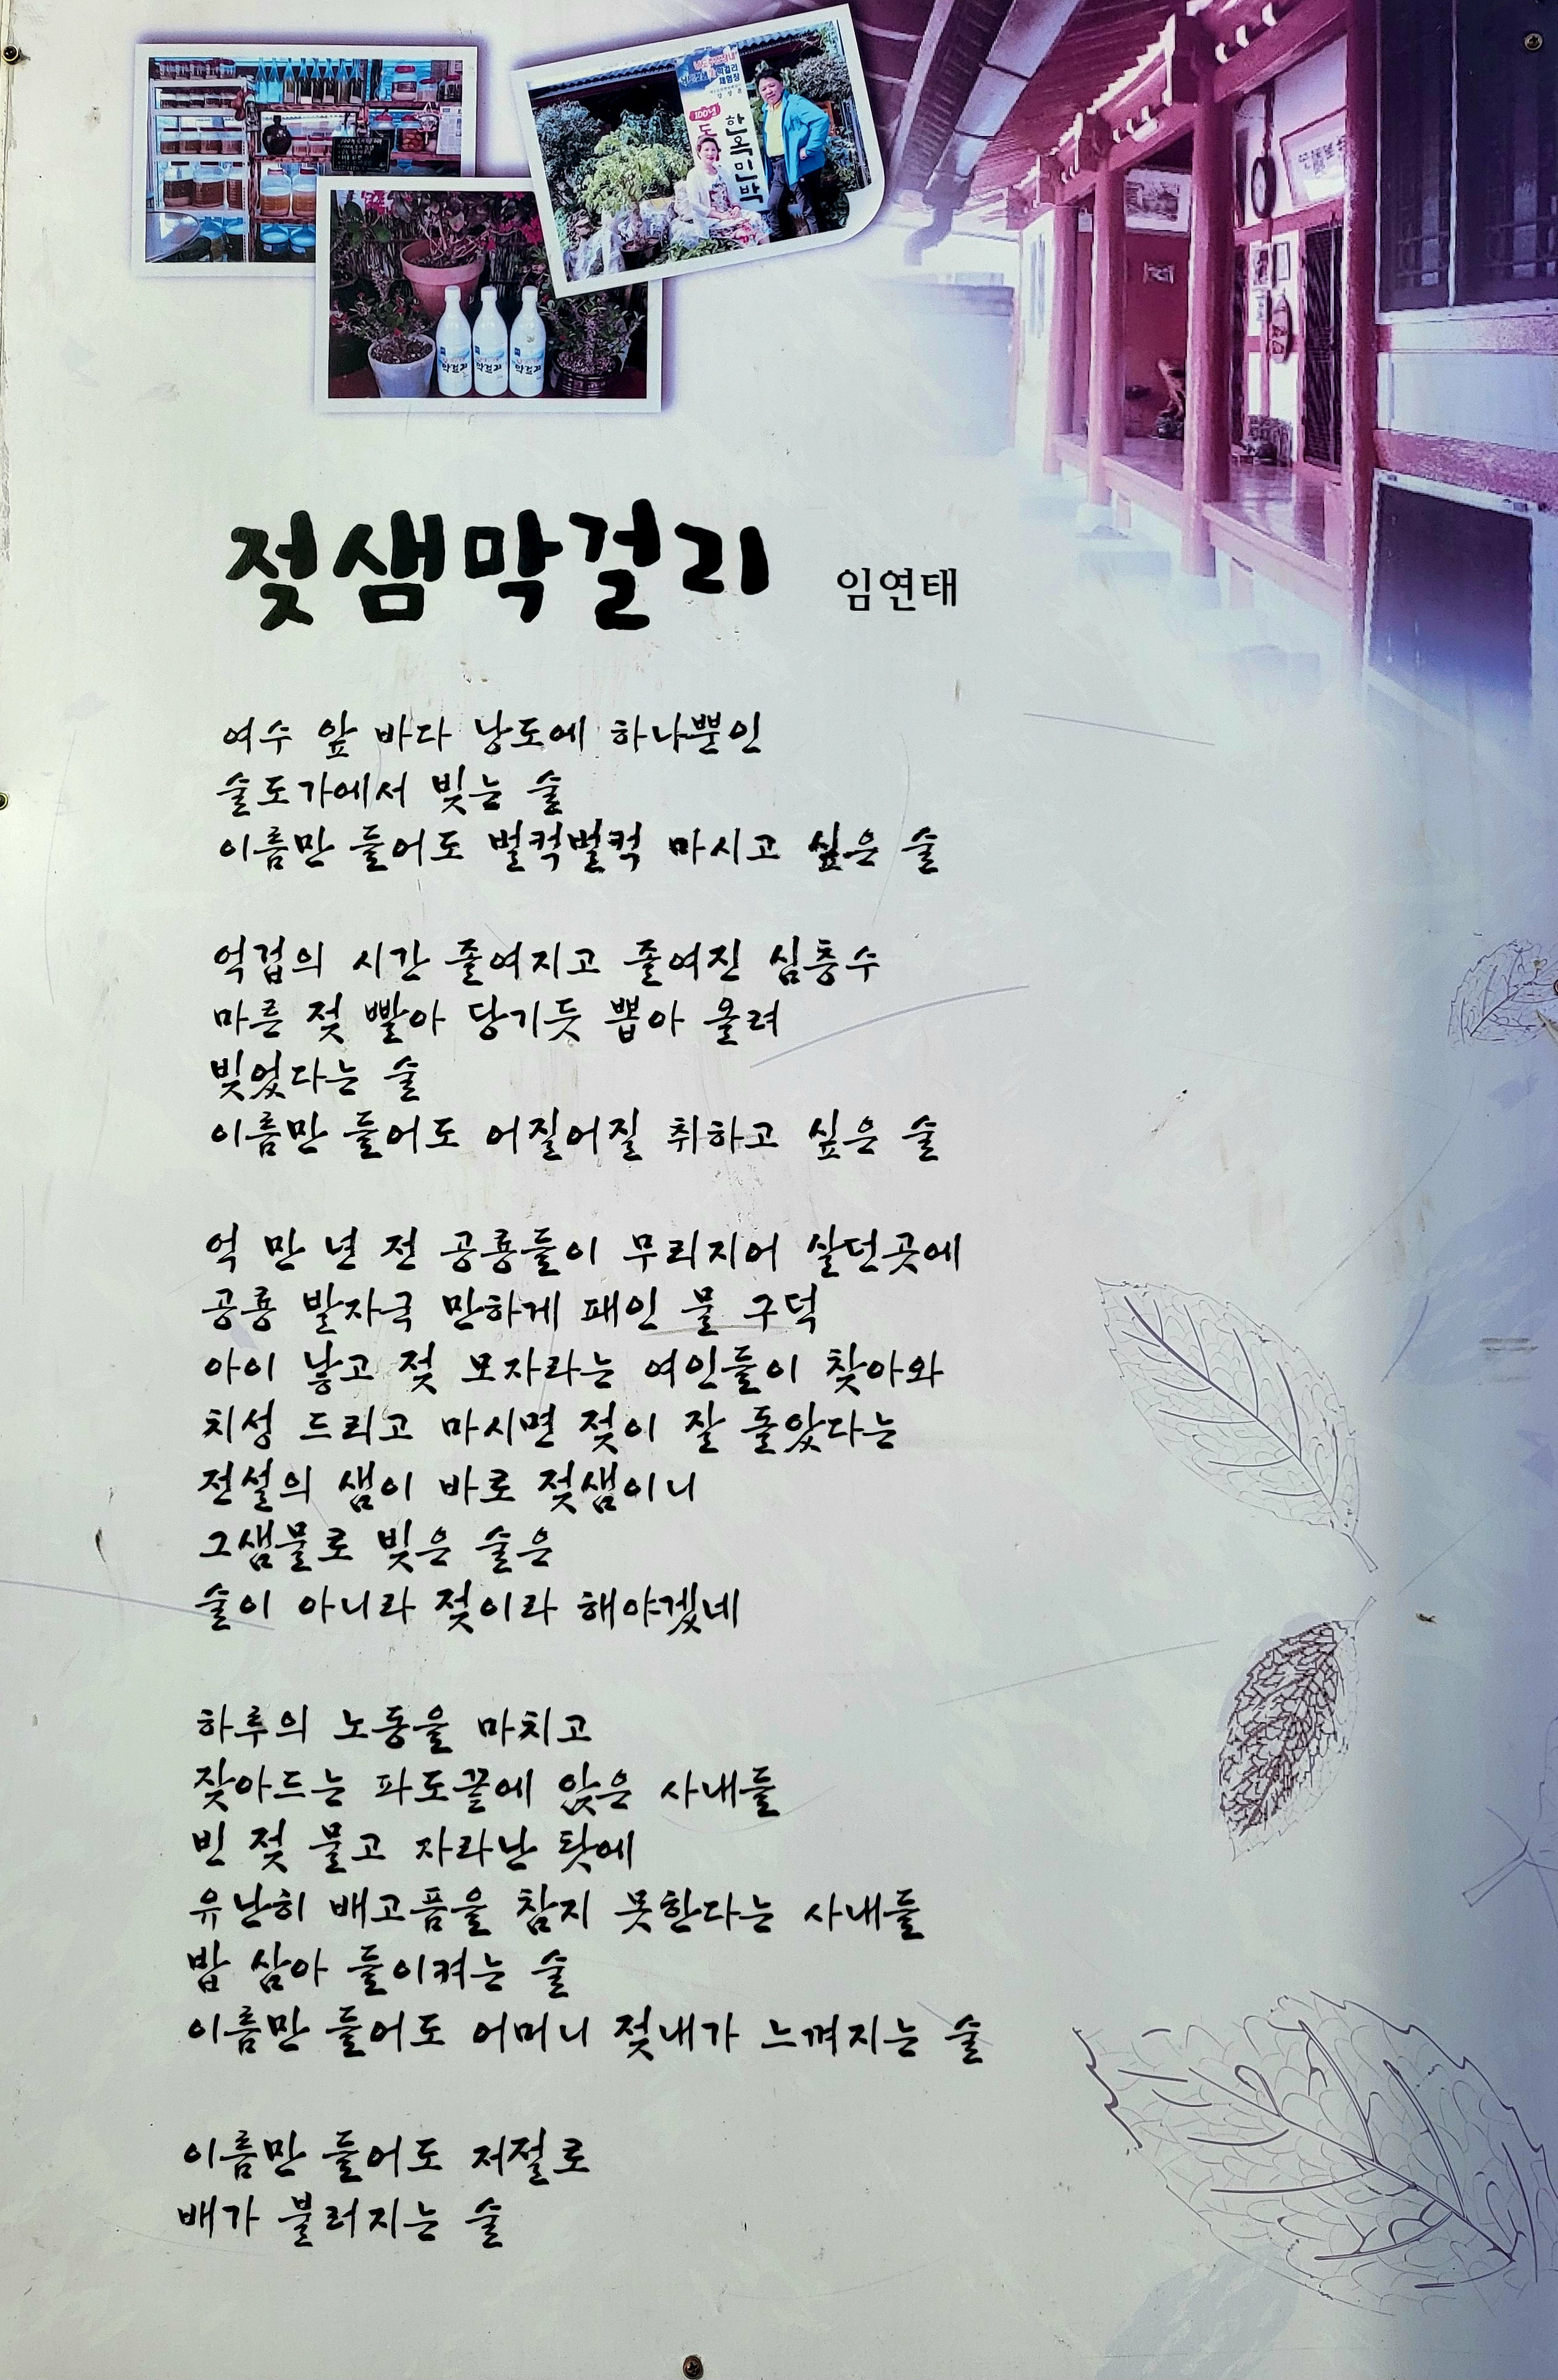 100년
한옥민박
막걸리
막걸리
막걸리
젖샘막걸리 임연태
여수 앞 바다 낭도에 하나뿐인
술도가에서 빚는 술
이름만 들어도 벌컥벌컥 마시고 싶은 술
억겁의 시간 졸여지고 졸여진 심층수
마른 젖 빨아 당기듯 뽑아 올려
빚었다는 술
이름만 들어도 어질어질 취하고 싶은 술
억 만 년 전 공룡들이 무리지어 살던곳에
공룡 발자국 만하게 패인 물 구덕
아이 낳고 젖 모자라는 여인들이 찾아와
치성 드리고 마시면 젖이 잘 돌았다는
전설의 샘이 바로 젖샘이니
그샘물로 빚은 술은
술이 아니라 젖이라 해야겠네
하루의 노동을 마치고
잦아드는 파도끝에 앉은 사내들
빈 젖 물고 자라난 탓에
유난히 배고픔을 참지 못한다는 사내들
밥 삼아 들이켜는 술
이름만 들어도 어머니 젖내가 느껴지는 술
이름만 들어도 저절로
배가 불러지는 술